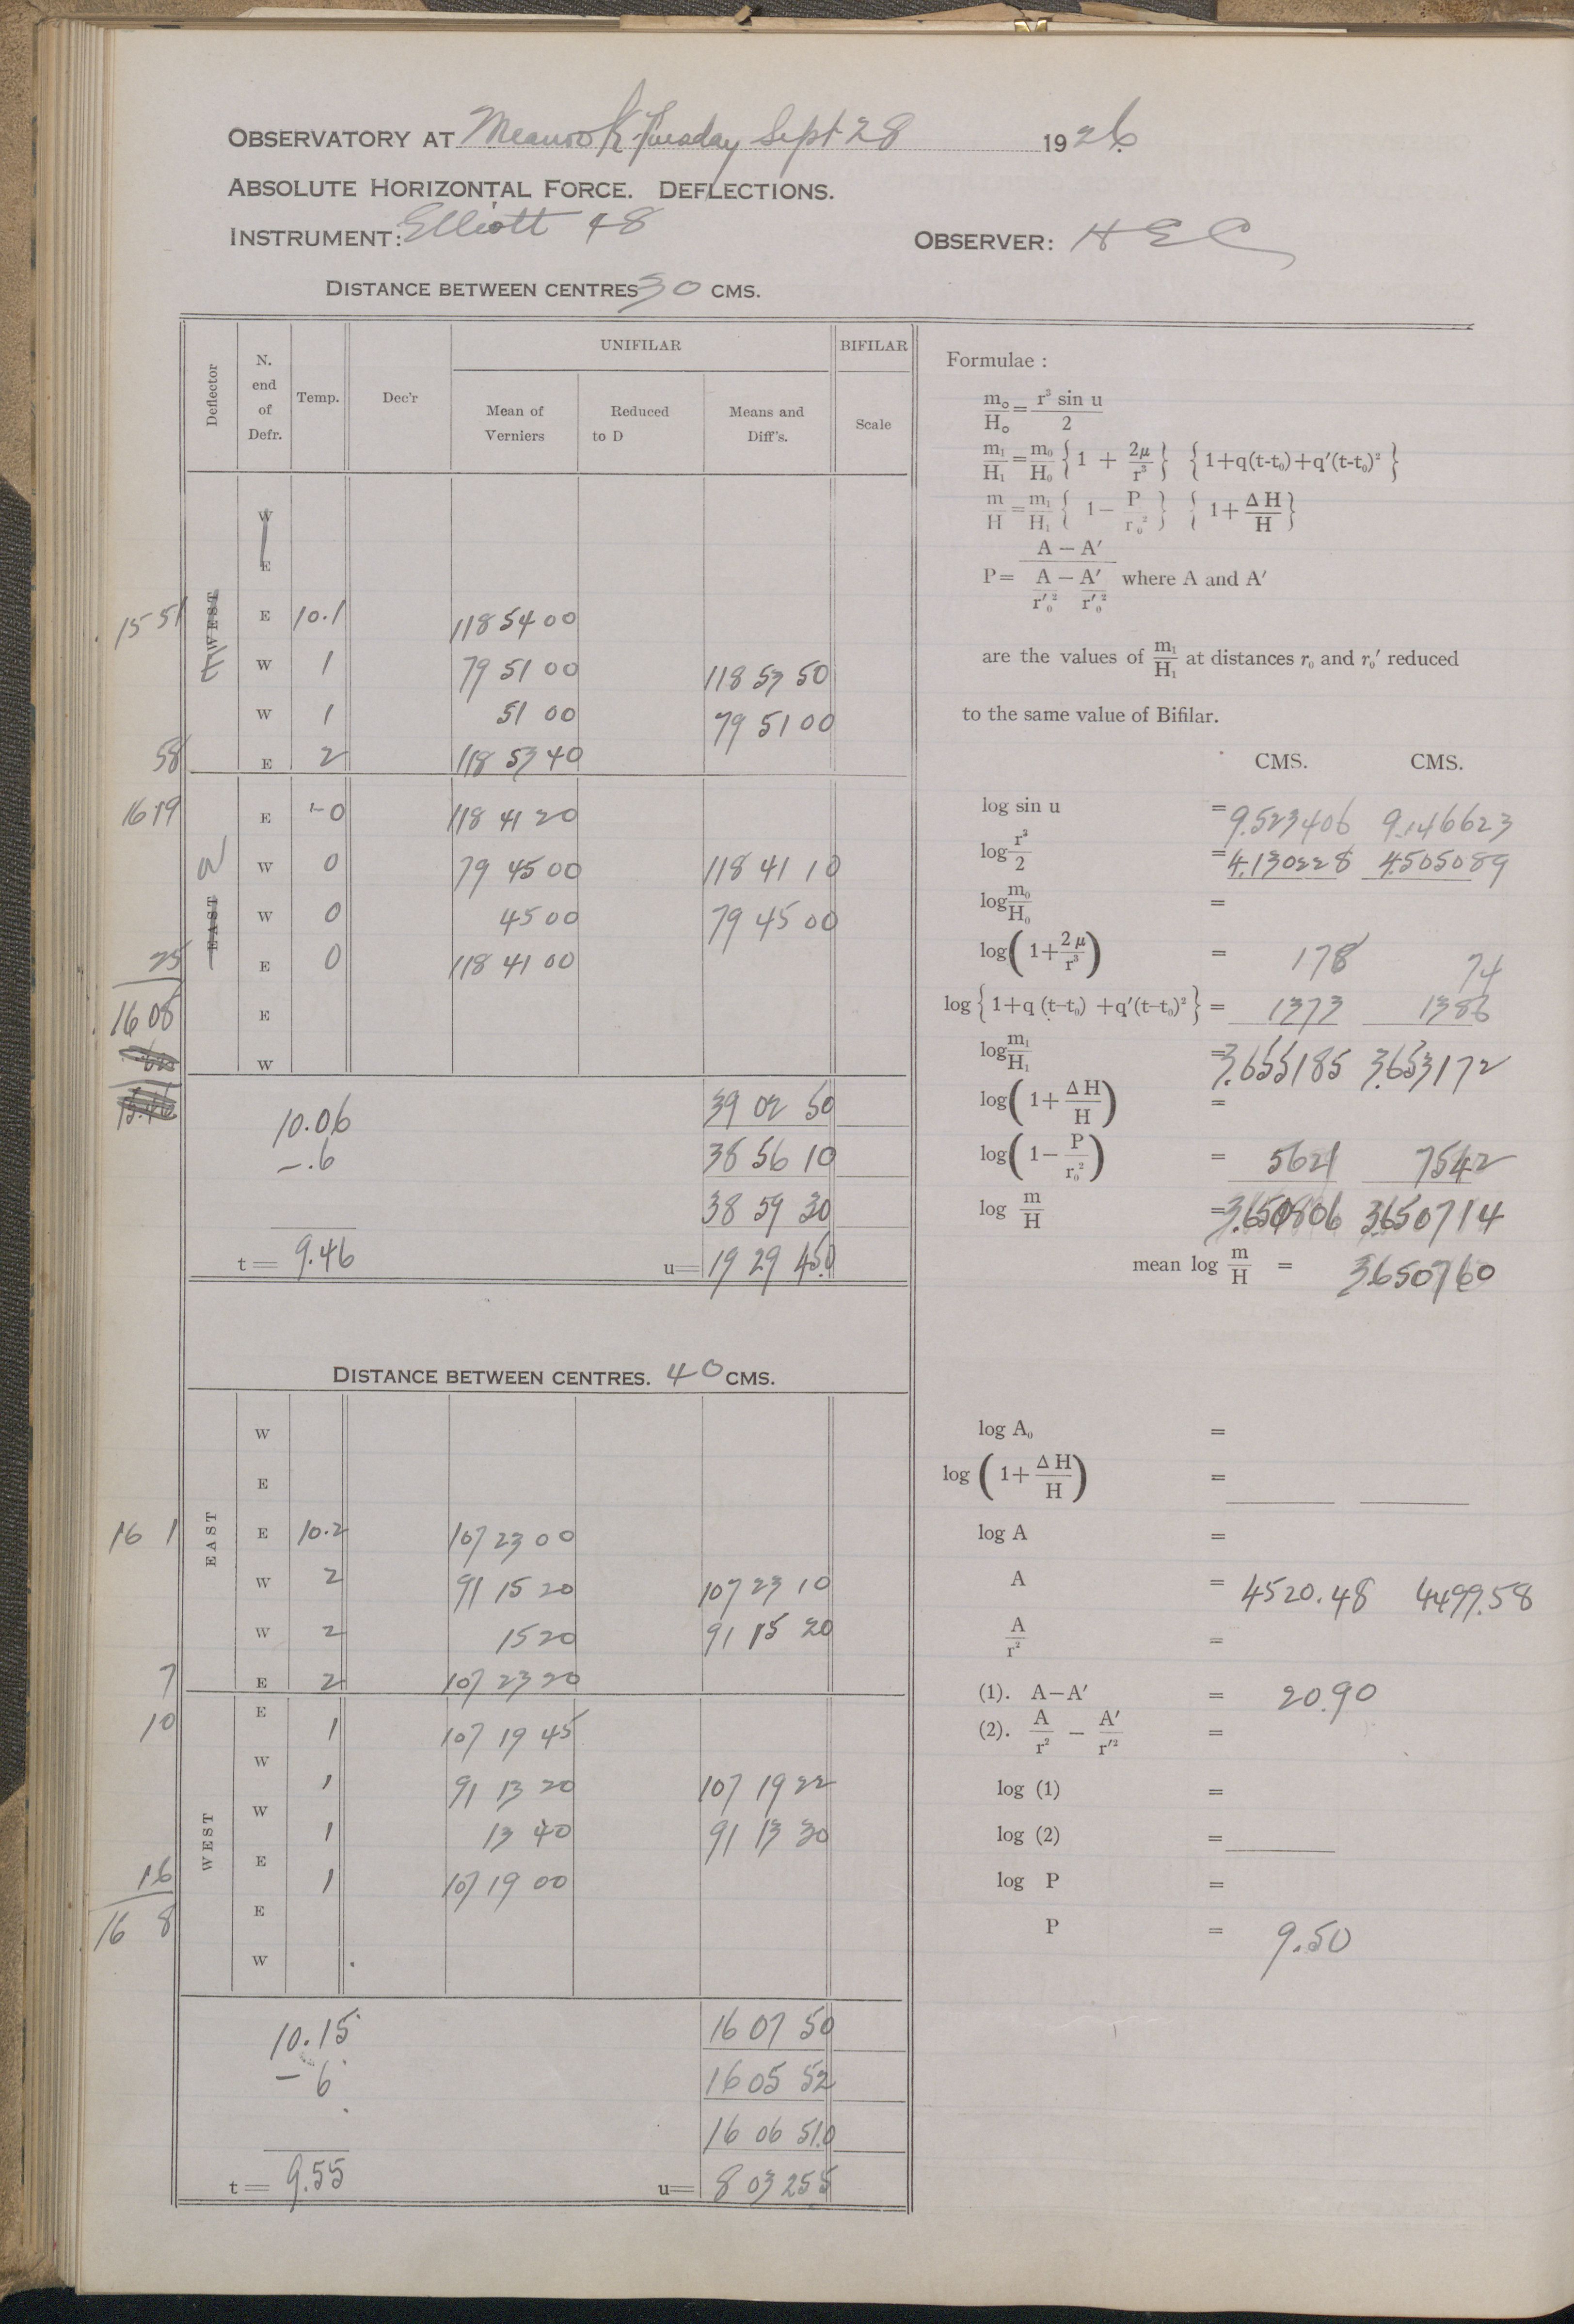 OBSERVATORY AT Meanook Tuesday Sept 28 1926
ABSOLUTE HORIZONTAL FORCE. DEFLECTIONS.
INSTRUMENT: Elliott 48 OBSERVER: HEC
DISTANCE BETWEEN CENTRES 30 CMS.
Deflector N. end of Defr. Temp. Dec'r UNIFILAR BIFILAR
Mean of Verniers Reduced to D Means and Diff's. Scale
W
E
WEST E
15 51 E 10.1 118 54 00
W 1 79 51 00 118 53 50
W 1 51 00 79 51 00
58 E 2 118 53 40
EAST W
16 19 E -0 118 41 20
W 0 79 45 00 118 41 10
W 0 45 00 79 45 00
25 E 0 118 41 00
16 08 E
W
10.06 39 02 50
-.6 38 56 10
38 59 30
t= 9.46 u= 19 29 45.0
DISTANCE BETWEEN CENTRES. 40 CMS.
EAST
W
E
16 1 E 10.2 107 23 00
W 2 91 15 20 107 23 10
W 2 15 20 91 15 20
7 E 2 107 23 20
WEST
10 E 1 107 19 45
W 1 91 13 20 107 19 22
W 1 13 40 91 13 30
16 E 1 107 19 00
16 8 E
W
10.15 16 07 50
-6 16 05 52
16 06 51.0
t= 9.55 u= 8 03 25 5
Formulae :
m₀/H₀ = r³ sin u/2
m₁/H₁ = m₀/H₀ {1 + 2μ/r³} {1+q(t-t₀)+q′(t-t₀)²}
m/H = m₁/H₁ {1− P/r₀²} {1+ ΔH/H}
P= A − A′ / A/r′₀² − A′/r′₀² where A and A′
are the values of m₁/H₁ at distances r₀ and r₀′ reduced
to the same value of Bifilar.
CMS. CMS.
log sin u = 9.523406 9.146623
log r³/2 = 4.130228 4.505089
log m₀/H₀ =
log(1+2μ/r³) = 178 74
log{1+q (t-t₀) +q′(t-t₀)²} = 1373 1386
log m₁/H₁ = 3.655185 3.653172
log(1+ ΔH/H) =
log(1− P/r₀²) = 5621 7542
log m/H = 3.650806 3650714
mean log m/H = 3650760
log A₀ =
log (1+ ΔH/H) =
log A =
A = 4520.48 4499.58
A/r² =
(1). A−A′ = 20.90
(2). A/r² − A′/r′² =
log (1) =
log (2) =
log P =
P = 9.50